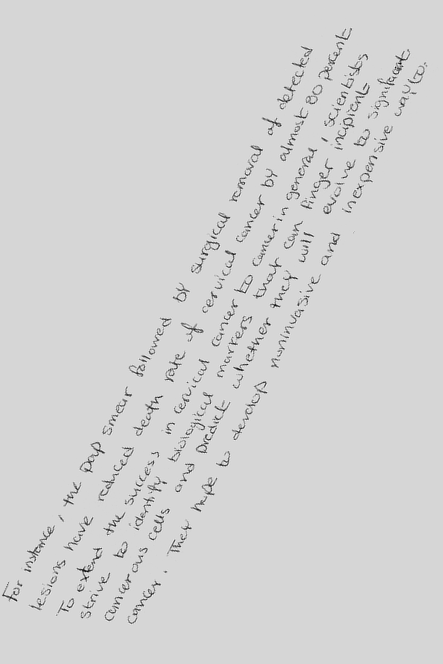 For instance, the pap smear followed by surgical removal of detected
lesions have reduced death rate of cervical cancer by almost 80 percent
To extend the success in cervical cancer to cancer in general, scientists
strive to identify biological markers that can finger incipient
cancerous cells and predict whether they will evolve to significant
cancer. They hope to develop noninvasive and inexpensive way to.